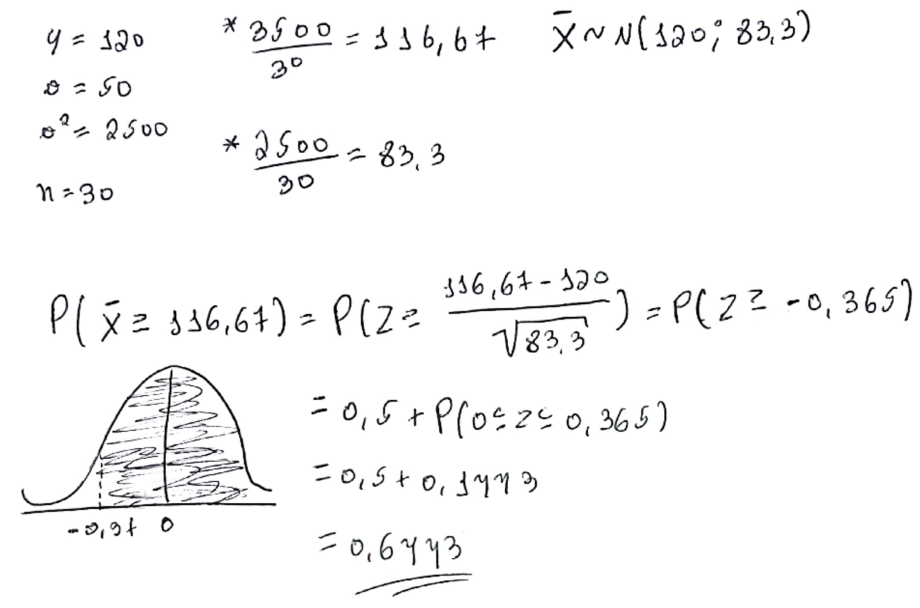 μ = 120
σ = 50
σ² = 2500
n = 30
* 3500/30 = 116,67
* 2500/30 = 83,3
X̄ ~ N(120; 83,3)
P(X̄ ≥ 116,67) = P(Z ≥ (116,67 - 120)/√83,3) = P(Z ≥ -0,365)
= 0,5 + P(0 ≤ Z ≤ 0,365)
= 0,5 + 0,1443
= 0,6443
-0,37 0